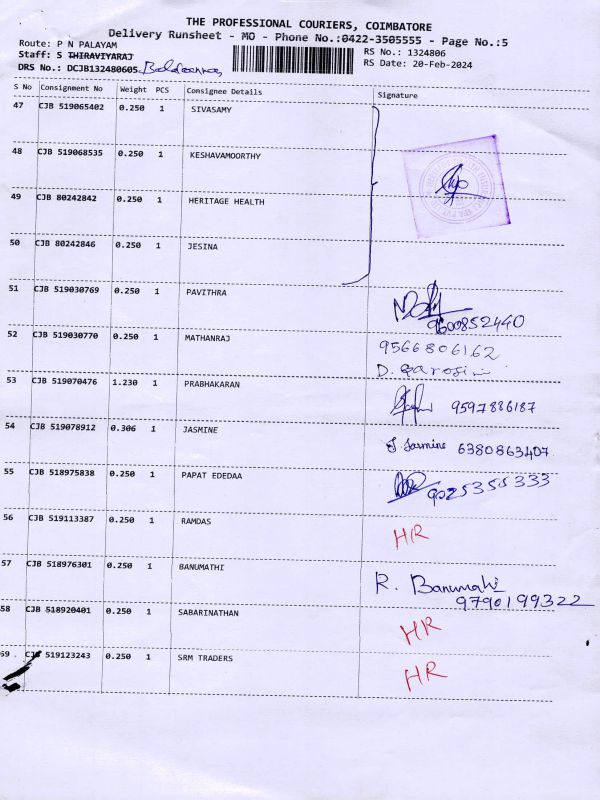 THE PROFESSIONAL COURIERS, COIMBATORE
Delivery Runsheet - MO - Phone No.:0422-3505555 - Page No.:5
Route: P N PALAYAM
RS No.: 1324806
Staff: S THIRAVIYARAJ
RS Date: 20-Feb-2024
DRS No.: DCJB132480605
S No Consignment No Weight PCS Consignee Details Signature
47 CJB 519065402 0.250 1 SIVASAMY
48 CJB 519068535 0.250 1 KESHAVAMOORTHY
49 CJB 80242842 0.250 1 HERITAGE HEALTH
50 CJB 80242846 0.250 1 JESINA
51 CJB 519030769 0.250 1 PAVITHRA
9600852440
52 CJB 519030770 0.250 1 MATHANRAJ 9566806162
D.
53 CJB 519070476 1.230 1 PRABHAKARAN 9597886187
54 CJB 519078912 0.306 1 JASMINE J Jasmine 6380863407
55 CJB 518975838 0.250 1 PAPAT EDEDAA 9025355333
56 CJB 519113387 0.250 1 RAMDAS HR
57 CJB 518976301 0.250 1 BANUMATHI R. Banumathi
9790199322
58 CJB 518920401 0.250 1 SABARINATHAN HR
59 CJB 519123243 0.250 1 SRM TRADERS HR